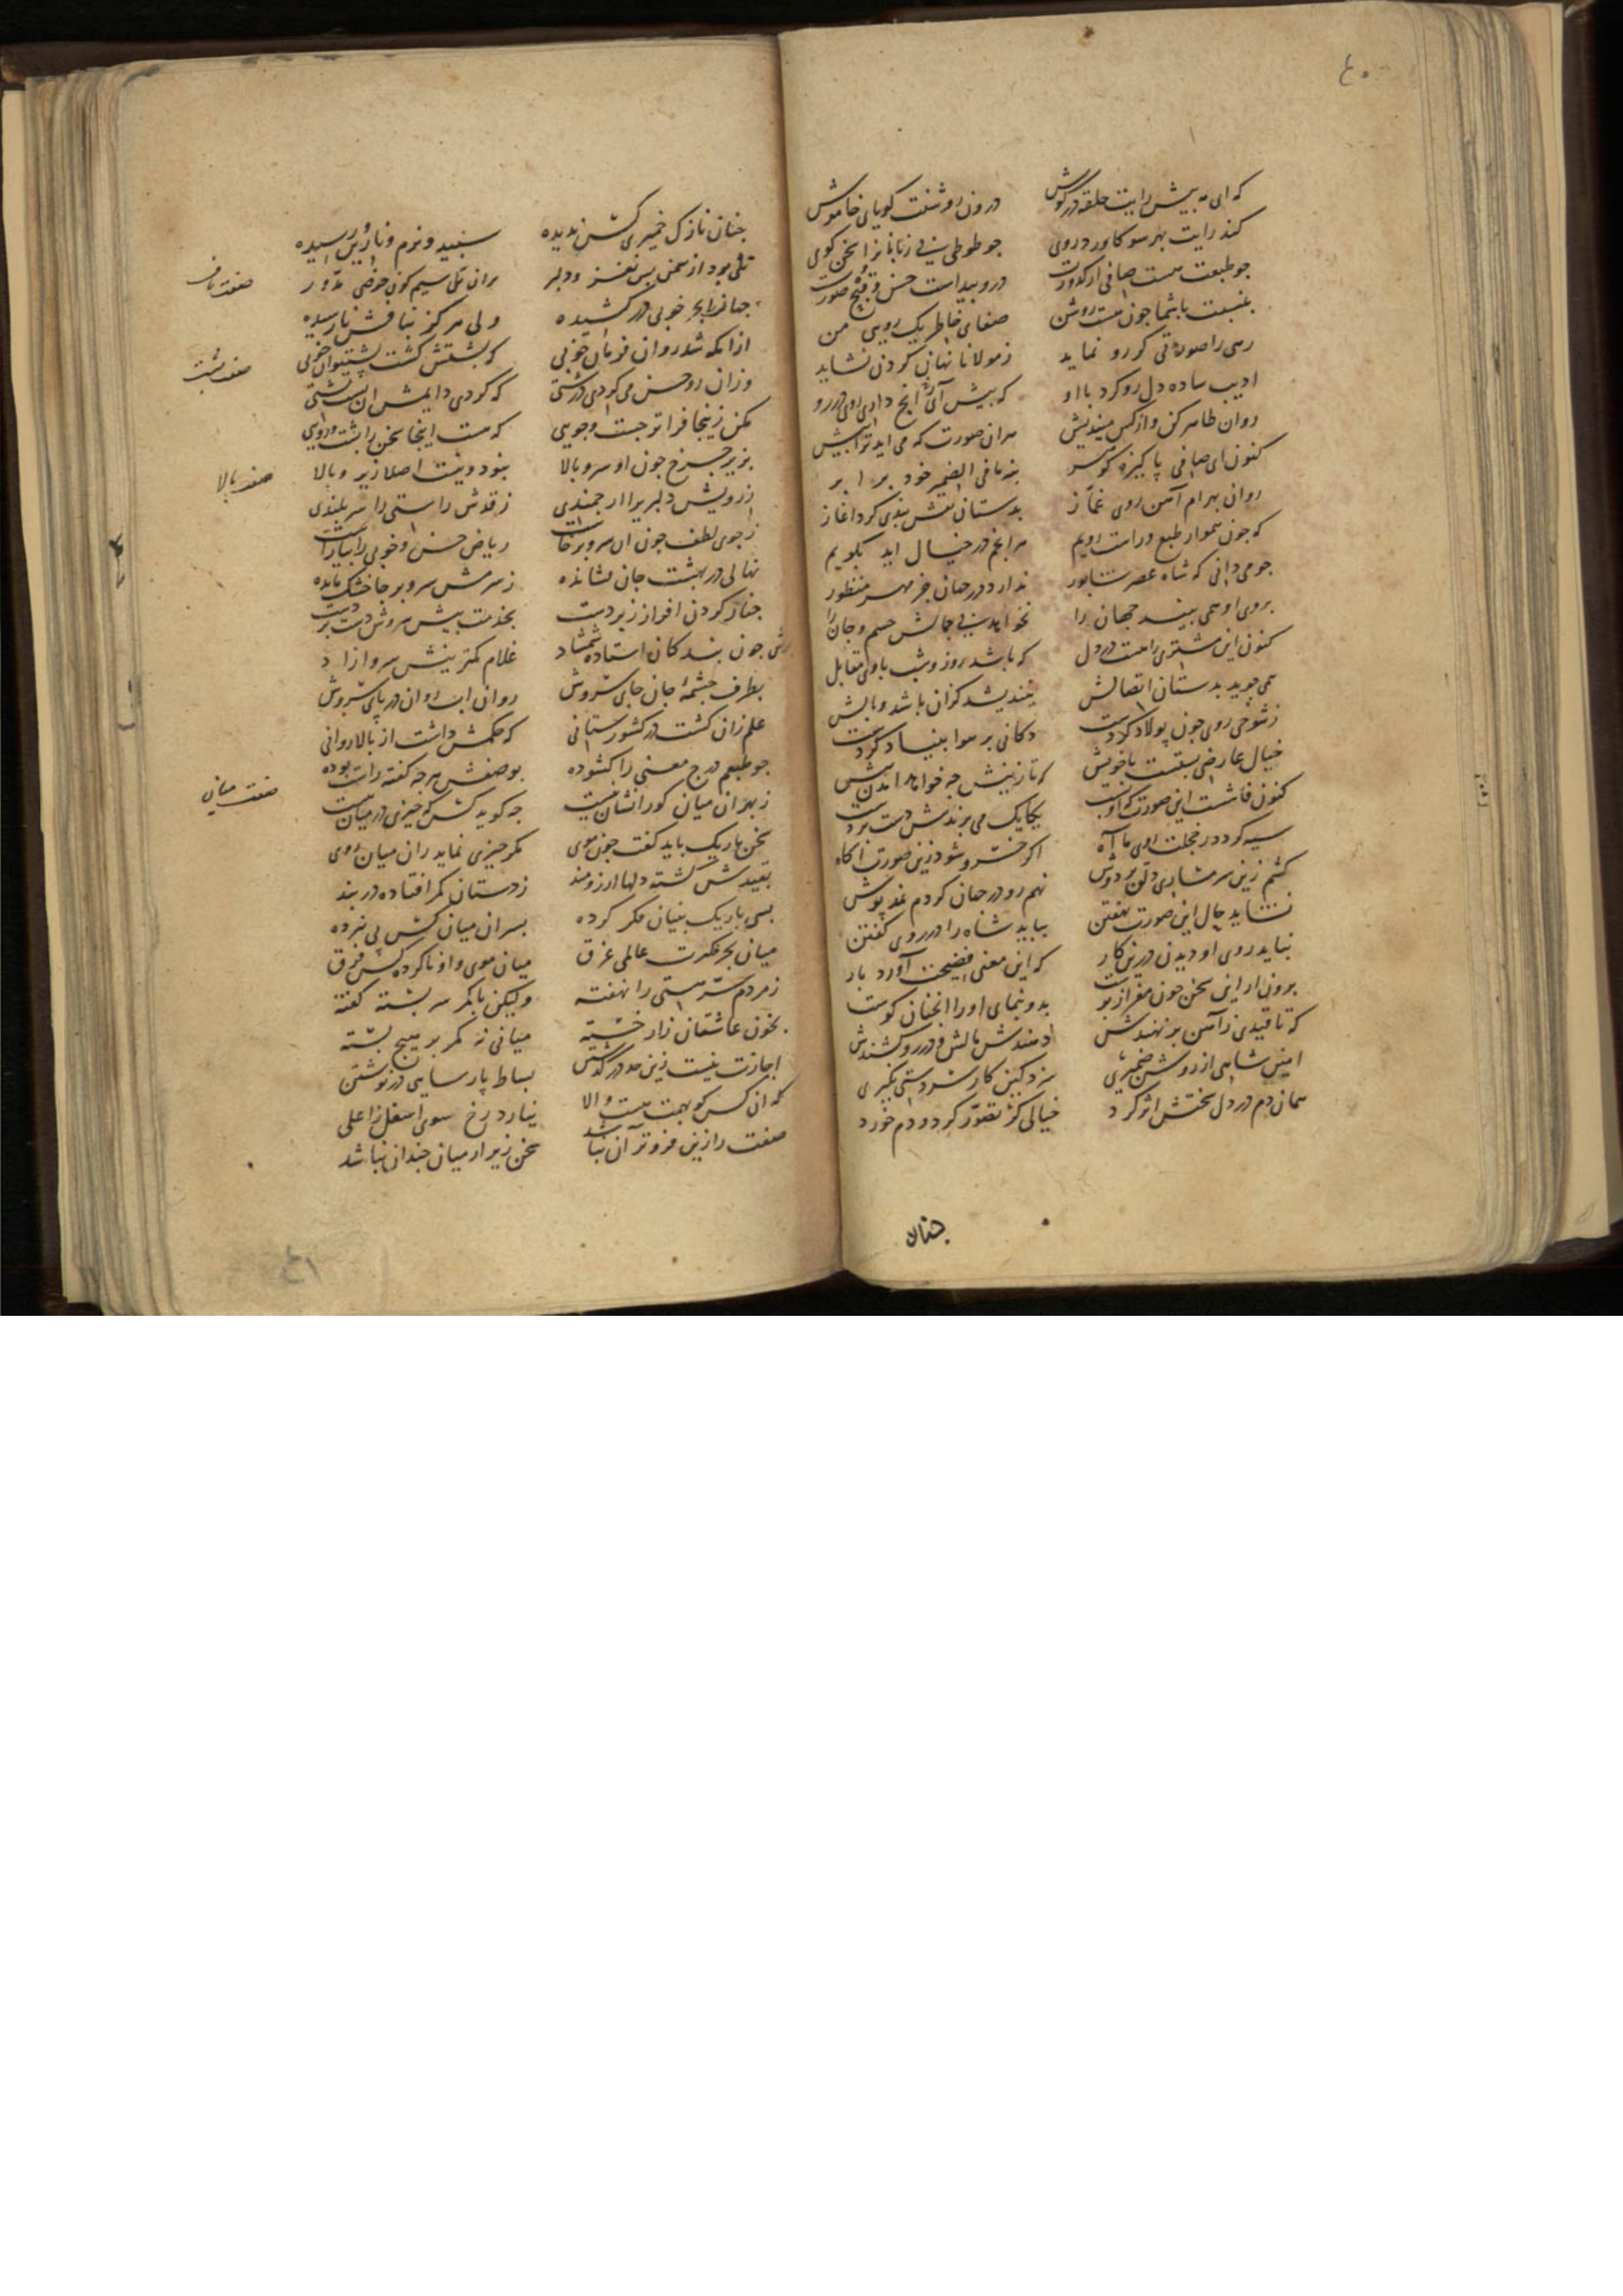 ٤٠
که ای مه پیش رایت حلقه در کوش درون روشنت کویای خاموش
کند رایت بهر سو کاورد روی جو طوطی بی زبانان را سخن کوی
جو طبعت هست صافی از کدورت درو پیداست حسن و قبح صورت
بنسبت با شما جون هست روشن صفای خاطر یک رویی من
رهی را صورتی کر رو نماید ز مولانا نهانی کردن نشاید
ادیب ساده دل رو کرد با او که پیش آی آنج داری
روان ظاهر کن و از کس میندیش هر ان صورت که می اید ترا پیش
کنون ای صافی پاکیزه کوهر بنه ما فی الضمیر خود برابر
روان بهرام آهن روی غماز بدستان نقش بندی کرد اغاز
که جون هموار طبع و راست رویم هر انجم در خیال اید بکویم
جو می دانی که شاه عصر شابور ندارد در جهان جز مهر منظور
بروی او همی بیند جهان را نخواهد بی جمالش جسم و جان را
کنون این مشتری راهست در دل که باشد روز و شب با وی مقابل
همی جوید بدستان اتصالش نیندیشد کزان باشد وبالش
ز شوخی روی جون پولاد کردست دکانی بر هوا بنیاد کردست
خیال عارضی بستست با خویش که تا زینش جه خواهد امدن پیش
کنون فاشست این صورت که او یکایک می برندش دست بر دست
سیه کردد ز خجلت روی ما آه اکر خسرو شود زین صورت اکاه
کشم زین سر مشابدی دلق بر دوش نهم رو در جهان کردم نمد پوش
نشاید حال این صورت نهفتن بباید شاه را در روی کفتن
نباید روی او دیدن درین کار که این معنی فضیحت آورد بار
برون ار این سخن جون مغز از پوست بدو بنمای او را انجنان کوست
که تا قیدی ز آهن بر نهندش دهندش مالش و در رو کشندش
امین شاهی از روشن ضمیری نزدکین کار سردستی بکیری
همان دم در دل سختش اثر کرد خیالی کژ تصور کرد و دم خورد
جنان
جنان نازک خمیری کس ندیده سپید و نرم و نازین رسیده
تلی بود از سمن بس نغز و دلبر بران تل سیم کون حوضی مدور
صفت ناف
جهانرا بحر خوبی در کشیده ولی هرکز بنافش نارسیده
ازانکه شد روان فرمان خوبی که پشتش کشت پشتیوان خوبی
صفت پشت
وزان رو حسن می کردی درشتی که کردی دایمش ان پشت پشتی
مکن زینجا فراتر جست و جویی که هست اینجا سخن را پشت و رویی
بزیر جرخ جون او سرو بالا نبود و نیست اصلا زیر و بالا
صفت بالا
ز رویش دلبری را ارجمندی ز قدش راستی را سر بلندی
ز جوی لطف جون ان سرو برخاست ریاض حسن و خوبی را بیاراست
نهالی در بهشت جان نشانده ز سرمش سرو بر جا خشک مانده
جنار کردن افراز زبردست بخدمت پیش سروش دست بر دست
برش جون بندکان استاده شمشاد غلام کمترینش سرو ازاد
بطرف جشمهٔ جان جای سروش روان اب روان در پای سروش
علم زان کشت در کشور ستانی که حکمش داشت از بالا روانی
جو طبعم درج معنی را کشوده بوصفش هرجه کفته راست بوده
صفت میان
ز بهر ان میان کو را نشان نیست جه کوید کس که جیزی در میان نیست
سخن باریک باید کفت جون موی مکر جیزی نماید زان میان روی
بقیدش کشته دلها ارزومند ز دستان کمر افتاده در بند
بسی باریک بینان فکر کرده بسر ان میان کس پی نبرده
میان بحر فکرت عالمی غرق میان موی و او ناکرده کس فرق
ز مردم سر هستی را نهفته ولیکن با کمر سر بسته کفته
بخون عاشقان زار خسته میانی نه کمر بر هیچ بسته
اجازت نیست زین حد در کذشتن بساط پارسایی در نوشتن
که ان کس کو بهمت هست والا نیارد رخ سوی اسفل ز اعلی
صفت را زین فروتر آن نباشد سخن زیر از میان جندان نباشد
٤١